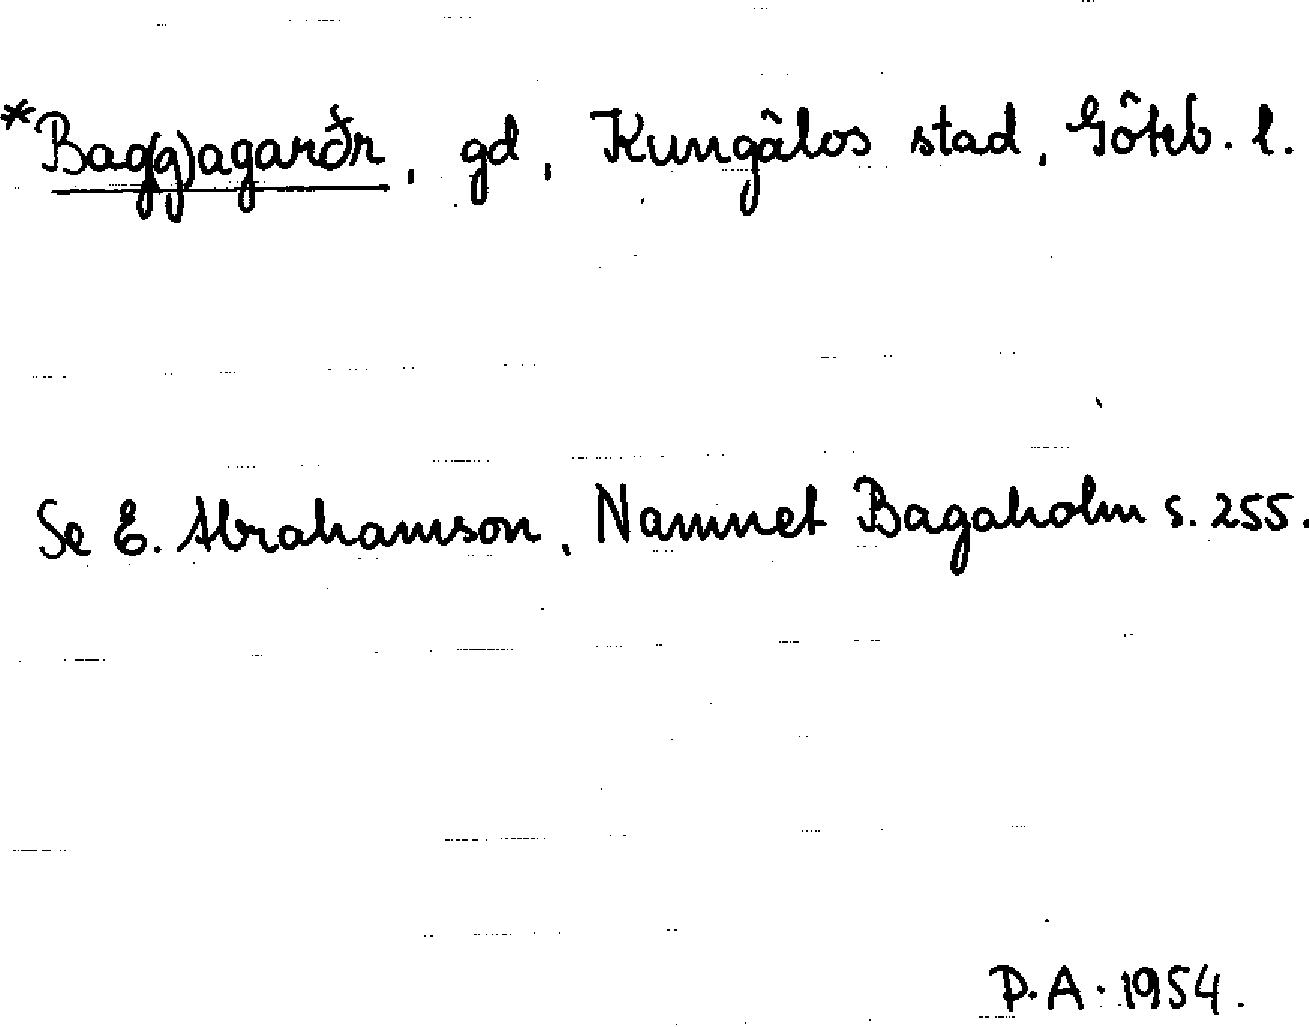 *Bag(g)agarðr, gd, Kungälvs stad, Göteb. l.
Se E. Abrahamson, Namnet Bagaholm s. 255.
P.A. 1954.